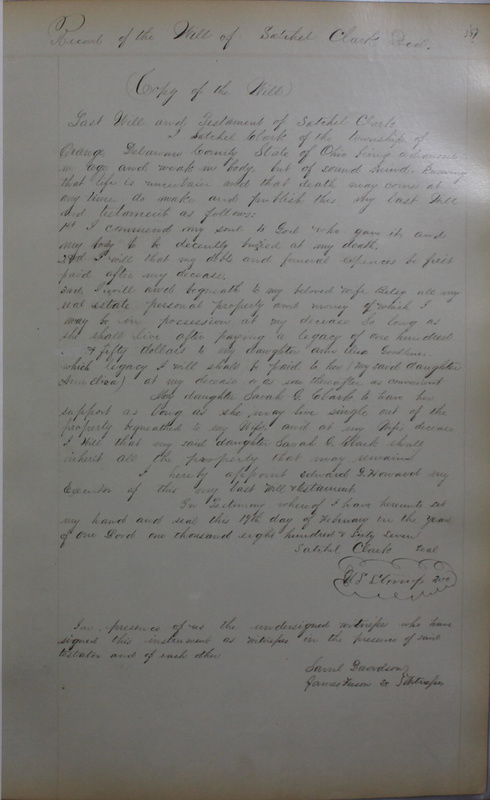 Record of the Will of Satchel Clark Decd.
(Copy of the Will)
Last Will and Testament of Satchel Clark
I Satchel Clark of the township of
Orange, Delaware County, State of Ohio being advanced
in age and weak in body, but of sound mind. Knowing
that life is uncertain and that death may come at
any time, do make and publish this my last Will
and testament as follows:
1st I commend my soul to God who gave it, and
my body to be decently buried at my death.
2nd I will that my debts and funeral expences be first
paid after my decease,
3rd. I will and bequeath to my beloved wife Betsy all my
real estate, personal property and money of which I
may be in possession at my decease so long as
she shall live after paying a legacy of one hundred
& fifty dollars to my daughter Ann
which legacy I will shall be paid to her (my said daughter
) at my decease or as soon thereafter as convenient
My daughter Sarah C. Clark to have her
support as long as she may live single out of the
property bequeathed to my wife, and at my wifes decease
I Will that my said daughter Sarah C. Clark shall
inherit all the property that may remain
I hereby appoint Edward G. Howard my
Executor of this my last Will & testament
In Testimony whereof I have hereunto set
my hand and seal this 19th day of February in the year
of our Lord one thousand eight hundred & sixty seven
Satchel Clark Seal
In presence of us the undersigned witnesses who have
signed this instrument as witnesses in the presence of said
testator and of each other
Saml Davidson
James